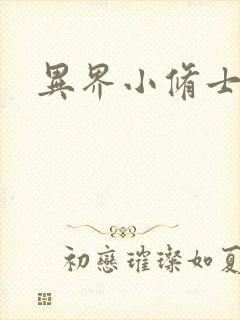 異界小脩士
初戀璀璨如夏